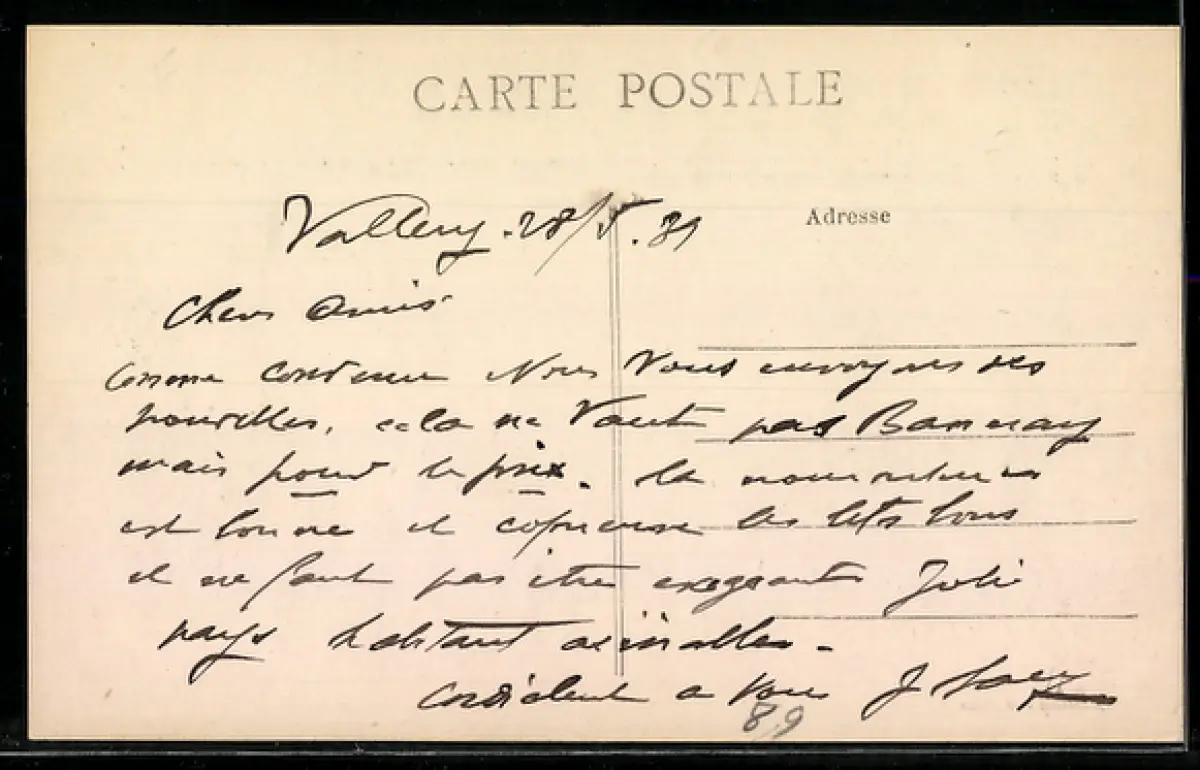 CARTE POSTALE
Adresse
Vallery . 28/5 . 31
Chers Amis
Comme convenu Nous Vous envoyons des
nouvelles, cela ne Vaut pas Bannay
mais pour le prix. la nourriture
est bonne et copieuse les lits bons
il ne faut pas être exegeants Joli
pays habitant aimables.
Cordialement a Vous J
89